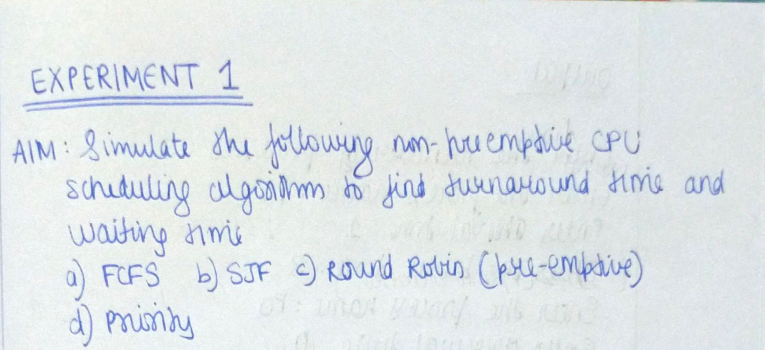 EXPERIMENT 1
AIM: Simulate the following non-preemptive CPU
scheduling algorithms to find turnaround time and
waiting time
a) FCFS b) SJF c) Round Robin (pre-emptive)
d) priority